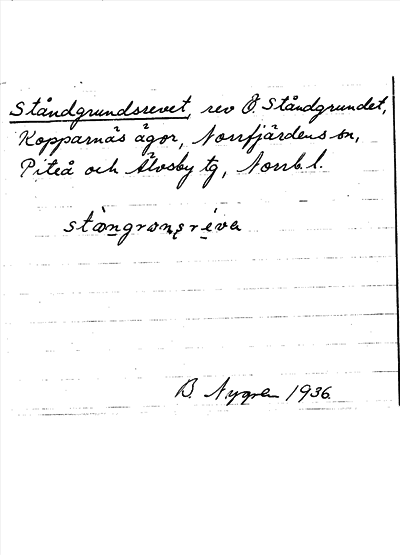 Ståndgrundsrevet, rev Ö. Ståndgrundet,
Kopparnäs ägor, Norrfjärdens sn,
Piteå och Älvsby tg, Norrb. l.
B. Nygren 1936.